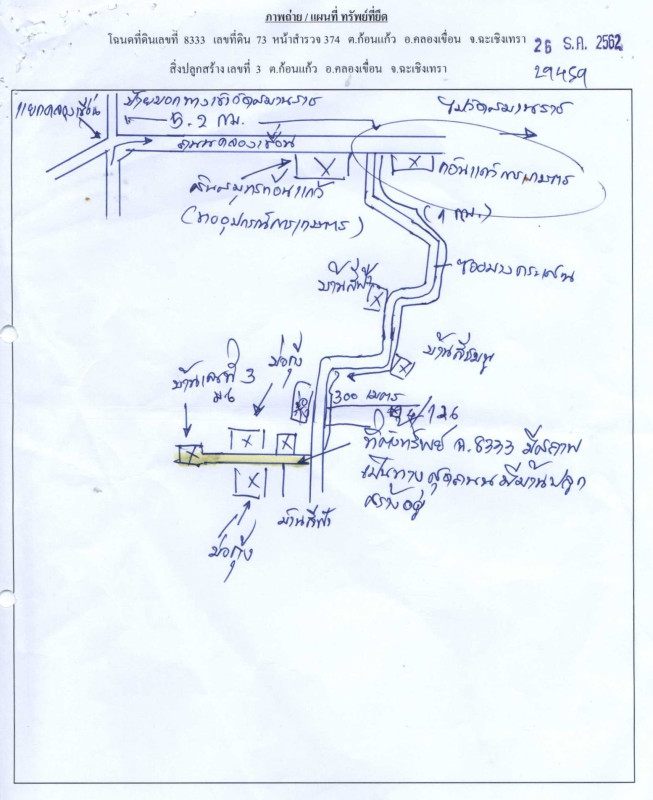 ภาพถ่าย / แผนที่ ทรัพย์ที่ยึด
โฉนดที่ดินเลขที่ 8333 เลขที่ดิน 73 หน้าสำรวจ 374 ต.ก้อนแก้ว อ.คลองเขื่อน จ.ฉะเชิงเทรา
26 ธ.ค. 2562
สิ่งปลูกสร้าง เลขที่ 3 ต.ก้อนแก้ว อ.คลองเขื่อน จ.ฉะเชิงเทรา
29459
แยกคลองเขื่อน
5.2 กม.
ถนนคลองเขื่อน
ก้อนแก้วการเกษตร
(ขายอุปกรณ์การเกษตร)
(1 กม.)
บ้านสีฟ้า
บ้านสีชมพู
บ่อกุ้ง
บ้านเลขที่ 3
ม.6
300 เมตร
ที่ตั้งทรัพย์ ฉ.8333 มีสภาพ
เป็นทาง สุดถนน มีบ้านปลูก
สร้างอยู่
บ้านสีฟ้า
บ่อกุ้ง